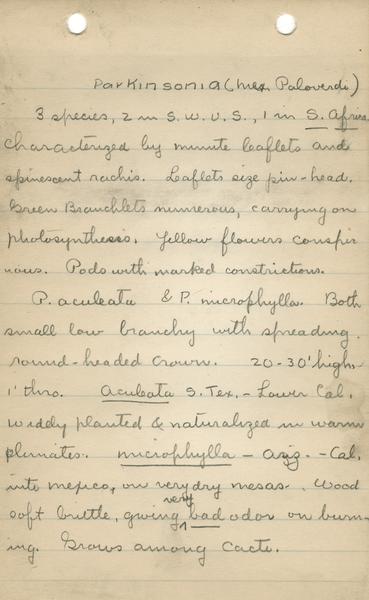 Parkinsonia (Mex. Paloverde)
3 species, 2 in S.W.U.S., 1 in S. Africa
Characterized by minute leaflets and
spinescent rachis. Leaflets size pin-head.
Green Branchlets numerous, carrying on
photosynthesis. Yellow flowers conspic
uous. Pods with marked constrictions.
P. aculeata & P. microphylla. Both
small low branchy with spreading
round-headed crown. 20-30' high-
1' thro. Aculeata S. Tex. - Lower Cal.
widdy planted & naturalized in warm
climates. microphylla - Ariz. - Cal.
into mexico, on very dry mesas. Wood
soft brittle, giving very bad odor on burn-
ing. Grows among Cacti.